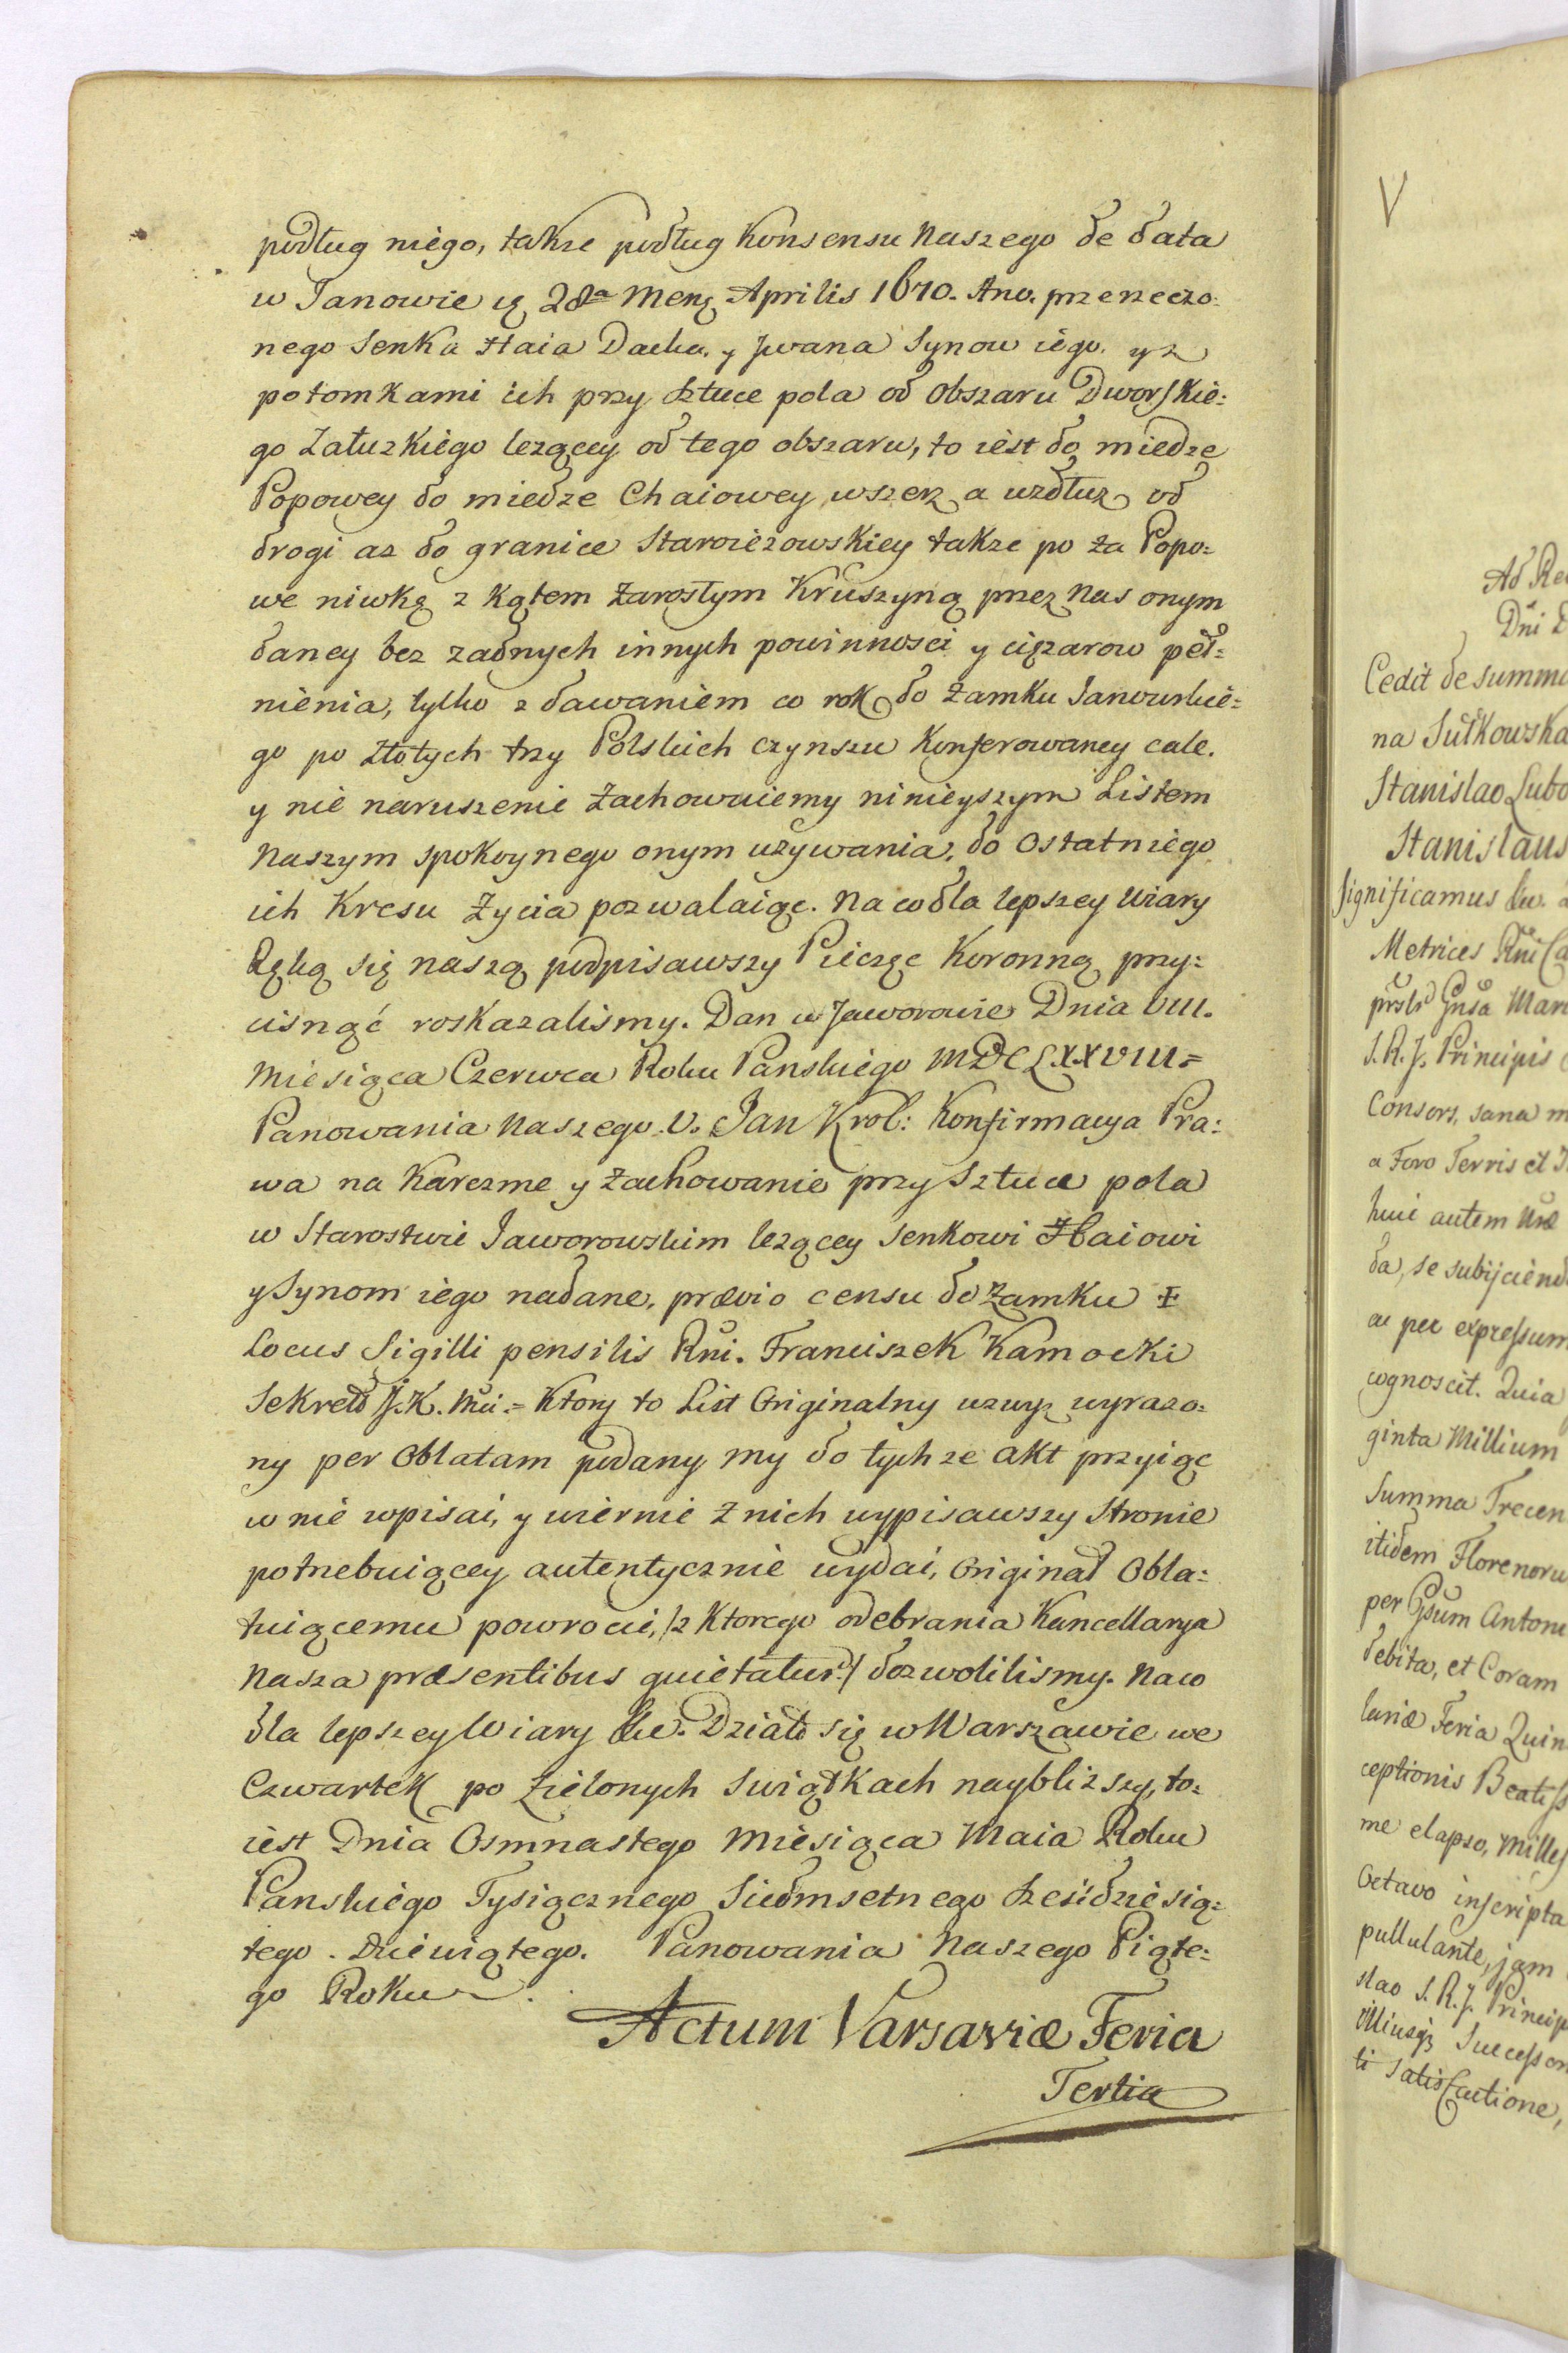 podług niego, takze podług Konsensu Naszego de data
w Janowie 28ª Mens Aprilis 1670. Ano. przerzeczo:
nego Senka Haia Dacka, y Jwana Synow iego, y z
potomkami ich przy sztuce pola od Obszaru Dworskie:
go Załuzkiego lezącey od tego obszaru, to iest do miedze
Popowey do miedze Chaiowey wszerz a wzdłuz od
drogi az do granice Starozięzowskiey takze po za Popo:
we niwką z Kątem Zarosłym Kruszyną przez Nas onym
daney bez zadnych innych powinnosci y ciężarow peł:
nienia, tylko z dawaniem co rok do Zamku Janowskie:
go po złotych trzy Polskich czynszu Konferowaney cale.
y nie naruszenie Zachowuiemy ninieyszym Listem
Naszym spokoynego onym uzywania, do Ostatniego
ich Kresu Zycia pozwalaiąc. Na co dla lepszey Wiary
Ręką się naszą podpisawszy Pieczęc Koronną przy:
cisnąć roskazalismy. Dan w Jaworowie Dnia VIII.
Miesiąca Czerwca Roku Panskiego MDCLXXVIII=
Panowania Naszego V. Jan Krol: Konfirmacya Pra:
wa na Karczme y Zachowanie przy Sztuce pola
w Starostwie Jaworowskim lezącey Senkowi Haiowi
y Synom iego nadane, prævio censu do Zamku
Locus Sigilli pensilis Rni. Franciszek Kamocki
Sekret J. K. Mci.= Ktory to List Originalny wzwyz wyrazo:
ny per Oblatam podany my do tychze akt przyiąc
w nie wpisai, y wiernie z nich wypisawszy Stronie
potrzebuiącey autentycznie wydai, Originał Obla:
tuiącemu powrocic, /z Ktorego odebrania Kancellarya
Nasza præsentibus quietatur:/ dozwolilismy. Na co
dla lepszey Wiary &c. Działo się w Warszawie we
Czwartek po Zielonych Swiątkach naybliższy, to:
iest Dnia Osmnastego Miesiąca Maia Roku
Panskiego Tysiącznego Siedmsetnego Szesćdziesią:
tego. Dziewiątego. Panowania Naszego Piąte:
go Roku
Actum Varsaviæ Feria
Tertia
V
Dni
Cedit de summa
na Sułkowska
Stanislao Lubo
Stanislaus
Significamus &c.
Metrices Rni Ca
S. R. J. Principis
Consors, sana m
a Foro Terris et
huic autem
da, se subijciend
ac per expressum
cognoscit. Quia
ginta Millium
Summa Trecen
itidem Florenoru
per Antoni
debita, et Coram
lariæ Feria Quin
ceptionis Beatiss
me elapso, Milles
Octavo inscripta
pullulante, jam
slao S. R. J. Princip
illiusq; Successor
ti Satisfactione,